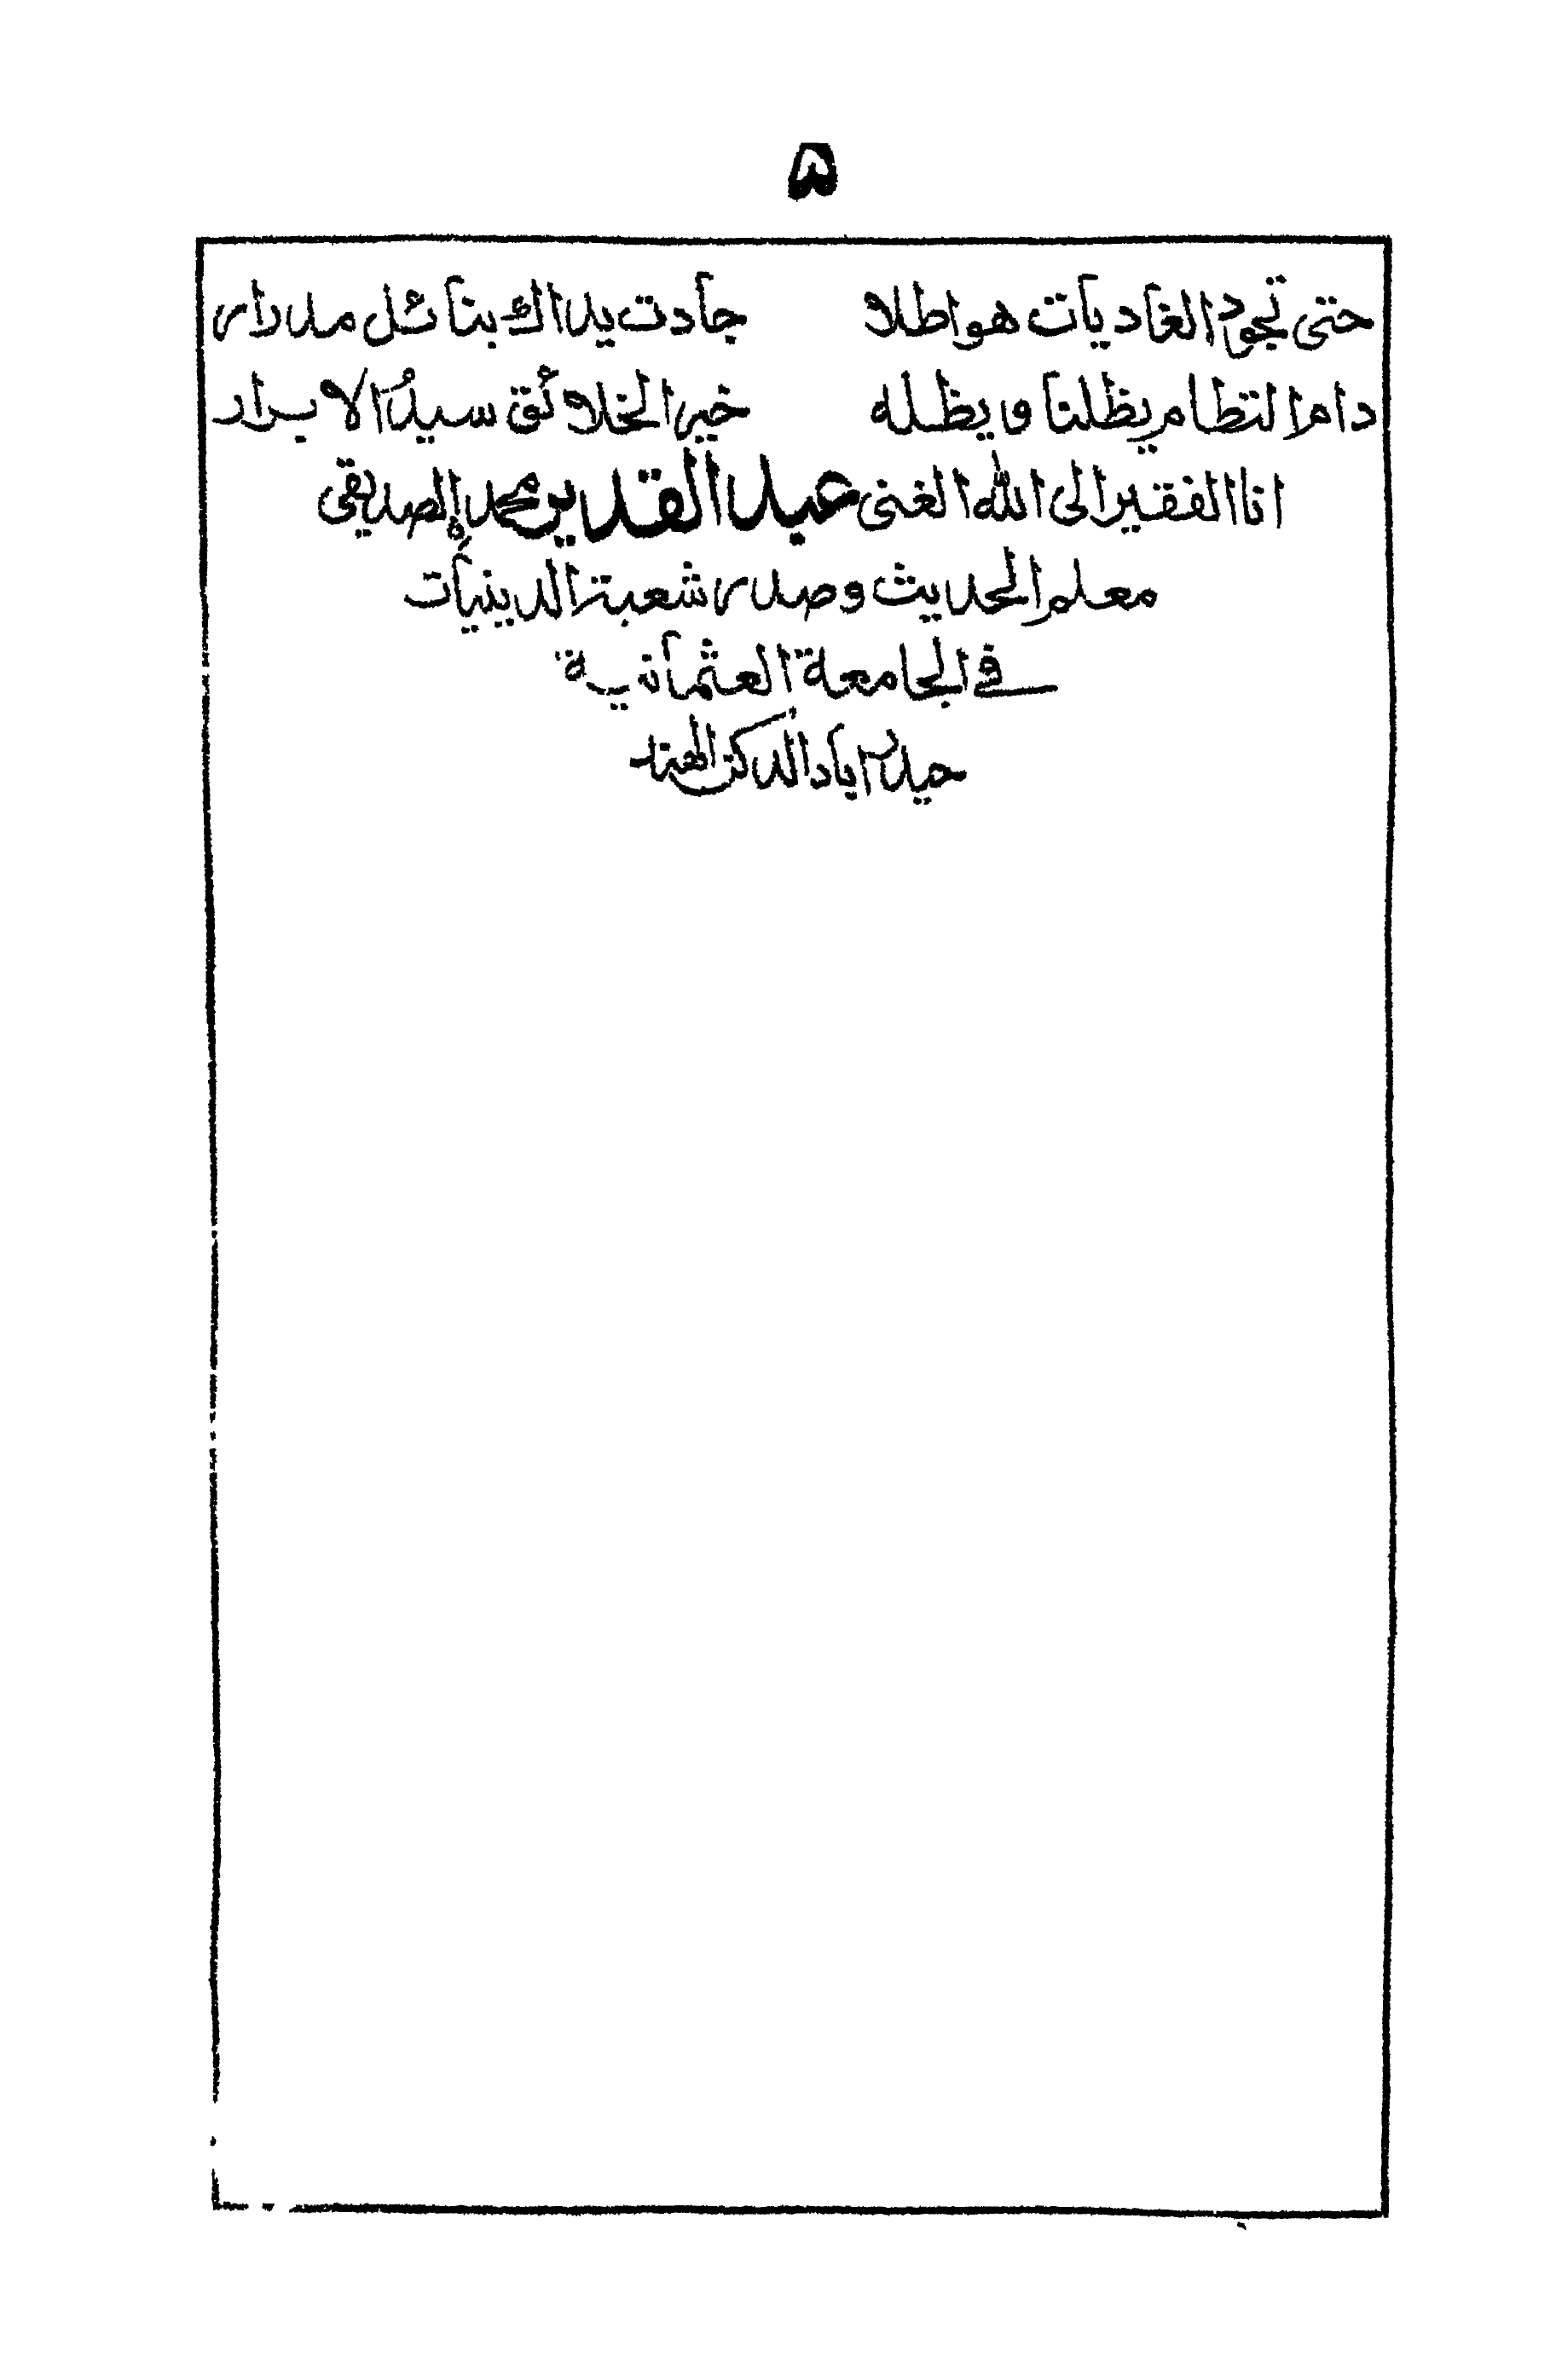 ۵
حتى تجود الغاديات هواطلا جادت يداك بنائل مدرار
دام النظام يظلنا ويظله خير الخلائق سيدُ الابرار
انا الفقير الى الله الغنى عبد القدير محمد الصديقى
معلم الحديث وصدر شعبة الدينيات
فى الجامعة العثمانية
حيدرآباد الدكن الهند